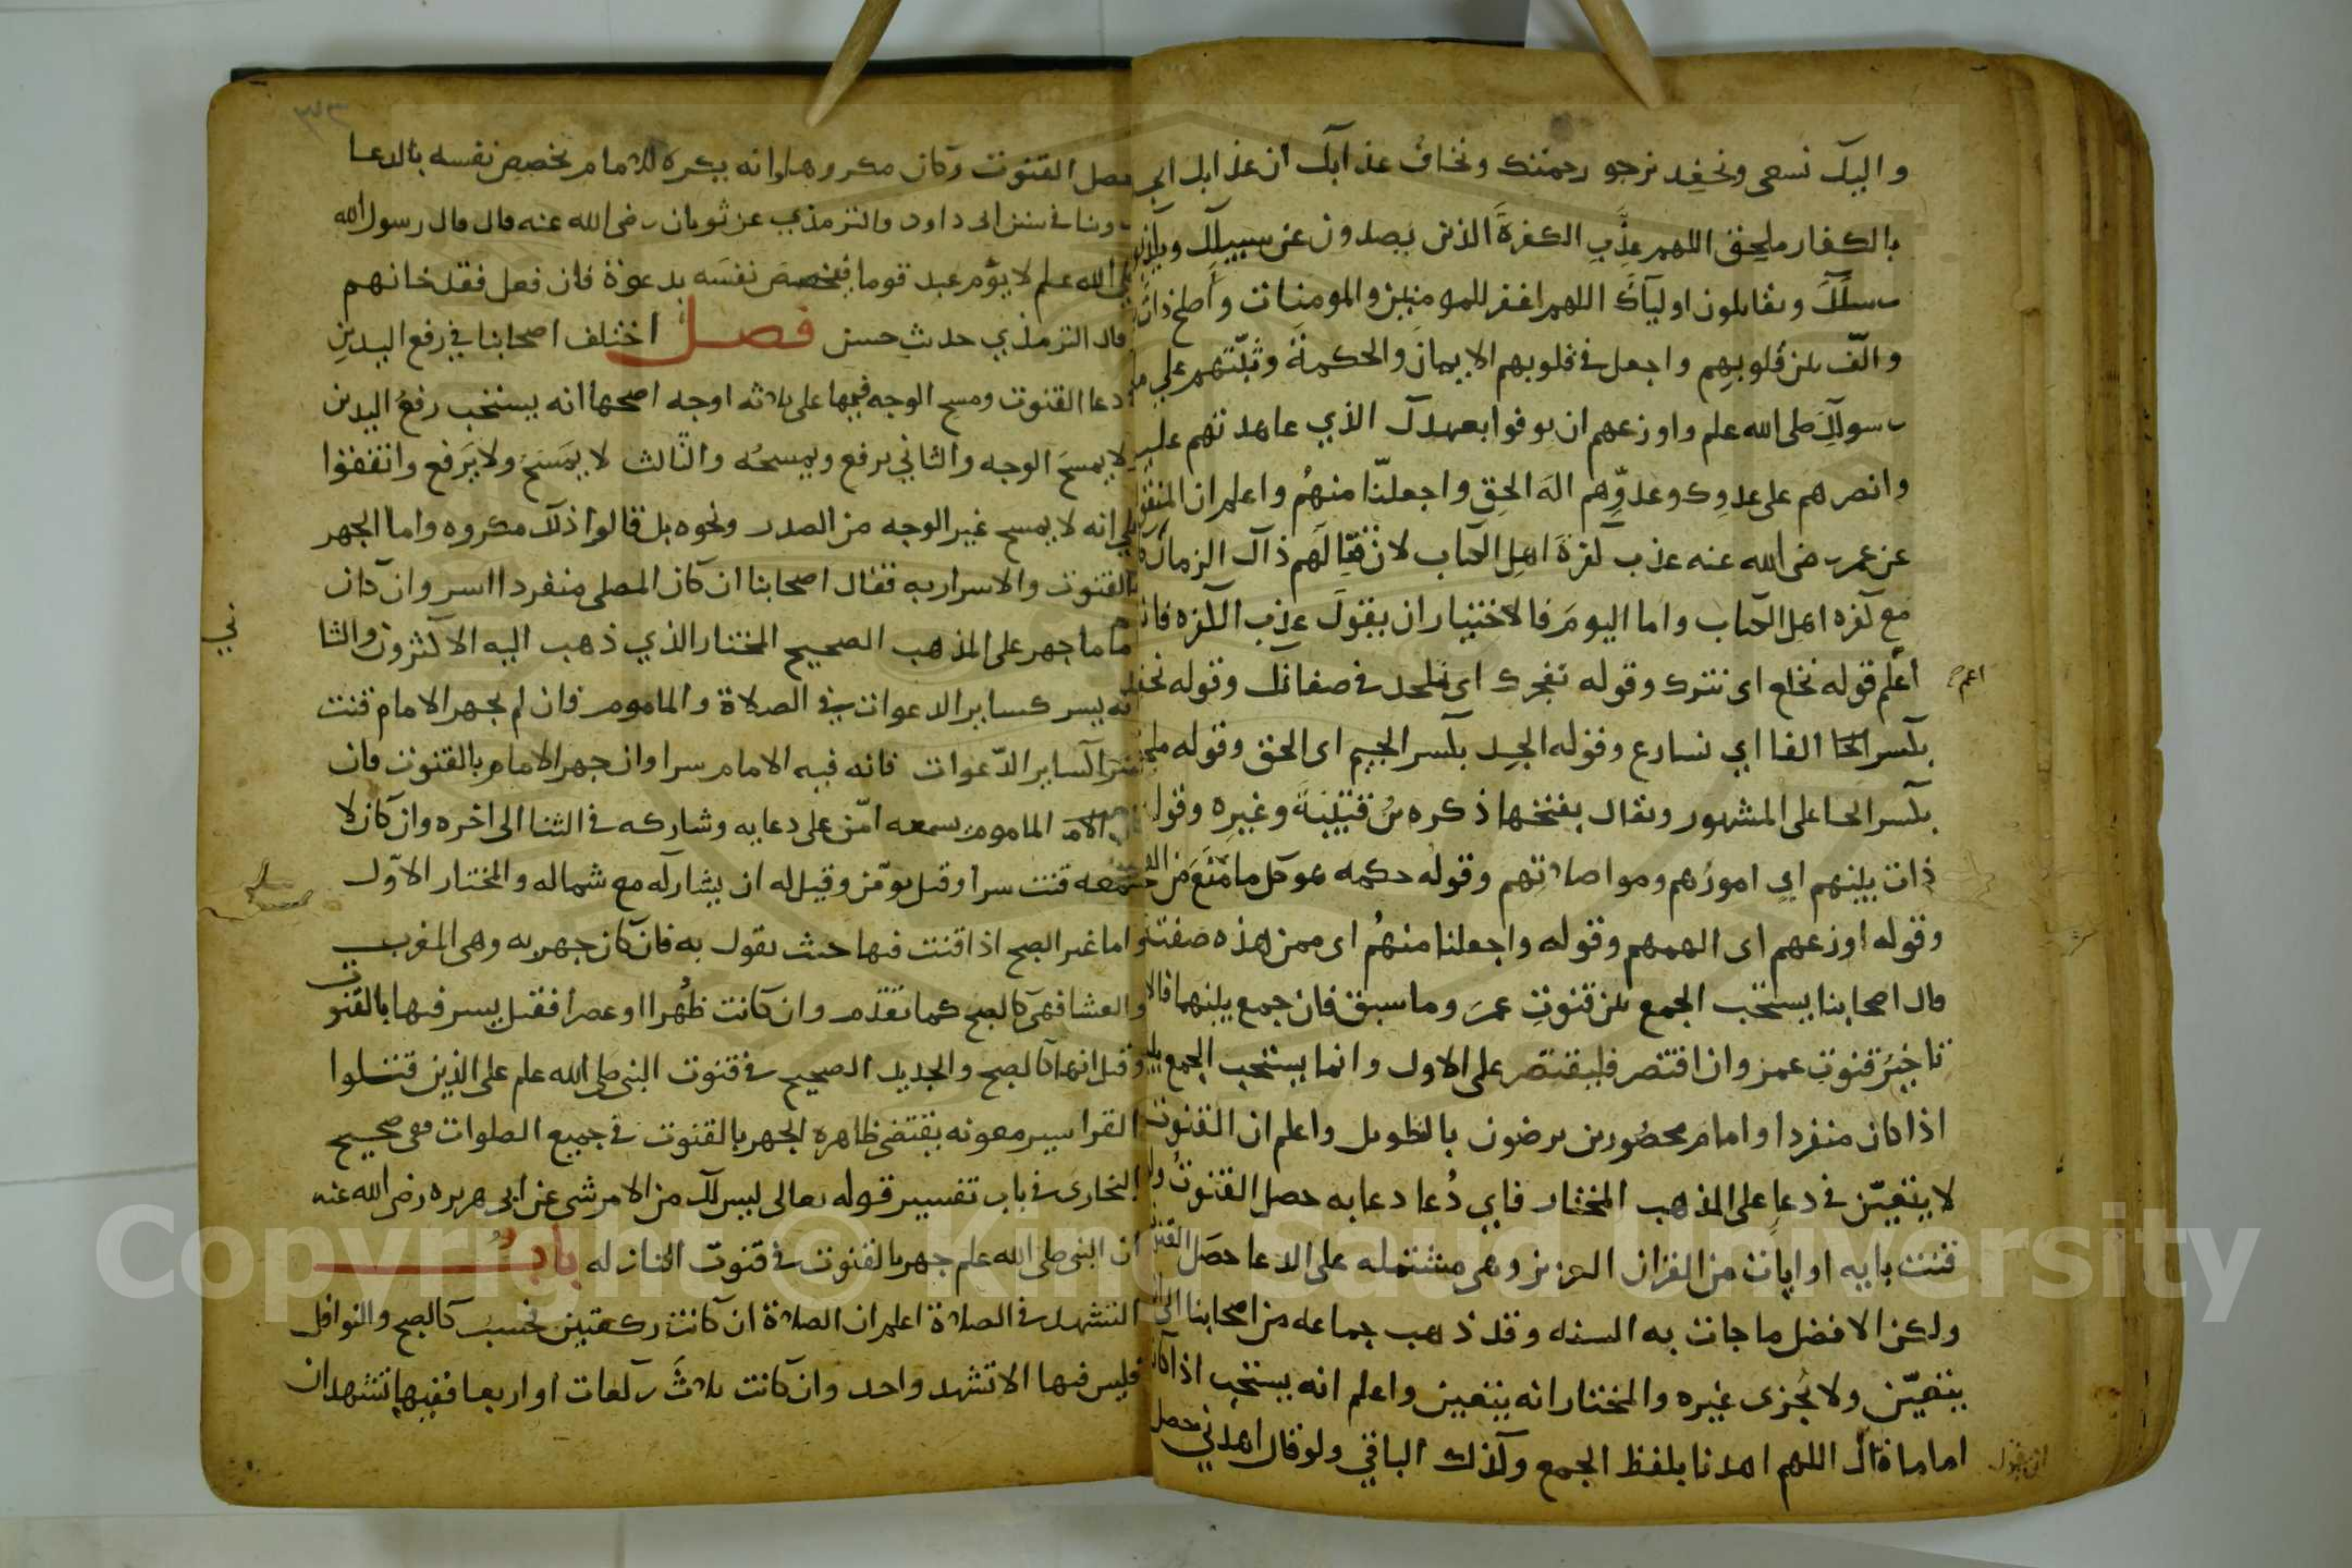 واليك نسعى ونحفد نرجو رحمتك ونخاف عذابك ان عذابك الجد
بالكفار ملحق اللهم عذب الكفرة الذين يصدون عن سبيلك ويكذبون
رسلك ويقاتلون اولياك اللهم اغفر للمومنين والمومنات واصلح ذات
والف بين قلوبهم واجعل في قلوبهم الايمان والحكمة وثبتهم على
رسولك صلى الله علم واوزعهم ان يوفوا بعهدك الذي عاهدتهم عليه
وانصرهم على عدوك وعدوهم اله الحق واجعلنا منهم واعلم ان المنقول
عن عمر رضى الله عنه عذب كفرة اهل الكتاب لان قتالهم ذاك الزمان
مع كفره اهل الكتاب واما اليوم فالاختيار ان يقول عذب الكفره فانه
اعم
اعلم قوله نخلع اى نترك وقوله نفجرك اى نلحد في صفاتك وقوله نحفد
بكسر الفا اي نسارع وقوله الجد بكسر الجيم اى الحق وقوله ملحق
بكسر الحا على المشهور ويقال بفتحها ذكره بن قتيبة وغيره وقوله
ذات بينهم اي امورهم ومواصلاتهم وقوله حكمه هو كل ما منع من
وقوله اوزعهم اى الهمهم وقوله واجعلنا منهم اى ممن هذه صفته
قال اصحابنا يستحب الجمع بين قنوت عمر وما سبق فان جمع بينهما فالا
تاخير قنوت عمر وان اقتصر فليقتصر على الاول وانما يستحب الجمع
اذا كان منفردا او امام محصورين يرضون بالتطويل واعلم ان القنوت
لا يتعين في دعا على المذهب المختار فاي دعا دعا به حصل القنوت ولو
قنت بايه او ايات من القران العزيز وهى مشتمله على الدعا حصل القنوت
ولكن الافضل ما جات به السنه وقد ذهب جماعه من اصحابنا الى انه
يتعين ولا يجزى غيره والمختار انه يتعين واعلم انه يستحب اذا كان
اماما قال اللهم اهدنا بلفظ الجمع وكذلك الباقي ولو قال اهدني حصل
ان يقول
٣٢
حصل القنوت وكان مكروها وانه يكره للامام تخصيص نفسه بالدعا
روينا في سنن ابى داود والترمذي عن ثوبان رضى الله عنه قال قال رسول الله
صلى الله علم لا يؤم عبد قوما فيخص نفسه بدعوة فان فعل فقد خانهم
قال الترمذي حديث حسن فصل اختلف اصحابنا في رفع اليدين
دعا القنوت ومسح الوجه فيها على ثلاثه اوجه اصحها انه يستحب رفع اليدين
لا يمسح الوجه والثاني يرفع ويمسحه والثالث لا يمسح ولا يرفع واتفقوا
على انه لا يمسح غير الوجه من الصدر ونحوه بل قالوا ذلك مكروه واما الجهر
بالقنوت والاسرار به فقال اصحابنا ان كان المصلى منفردا اسر وان كان
اماما جهر على المذهب الصحيح المختار الذي ذهب اليه الاكثرون والثا
ني
انه يسر كساير الدعوات في الصلاة والماموم فان لم يجهر الامام قنت
سرا كساير الدعوات فانه فيه الامام سرا وان جهر الامام بالقنوت فان
كان الماموم يسمعه امن على دعايه وشاركه في الثنا الى اخره وان كان لا
يسمعه قنت سرا وقيل يومن وقيل له ان يشاركه مع سماله والمختار الاول
واما غير الصبح اذا قنت فيها حيث يقول به فان كان جهريه وهى المغرب
والعشا فهى كالصبح كما تقدم وان كانت ظهرا او عصرا فقيل يسر فيها بالقنوت
وقيل انها كالصبح والحديث الصحيح في قنوت النبى صلى الله علم على الذين قتلوا
القرا ببير معونه يقتضى ظاهره الجهر بالقنوت في جميع الصلوات ففى صحيح
البخارى في باب تفسير قوله تعالى ليس لك من الامر شى عن ابي هريره رضى الله عنه
ان النبى صلى الله علم جهر بالقنوت في قنوت النازله باب
التشهد في الصلاة اعلم ان الصلاة ان كانت ركعتين فحسب كالصبح والنوافل
فليس فيها الا تشهد واحد وان كانت ثلاث ركعات او اربعا ففيها تشهدان
Copyright © King Saud University